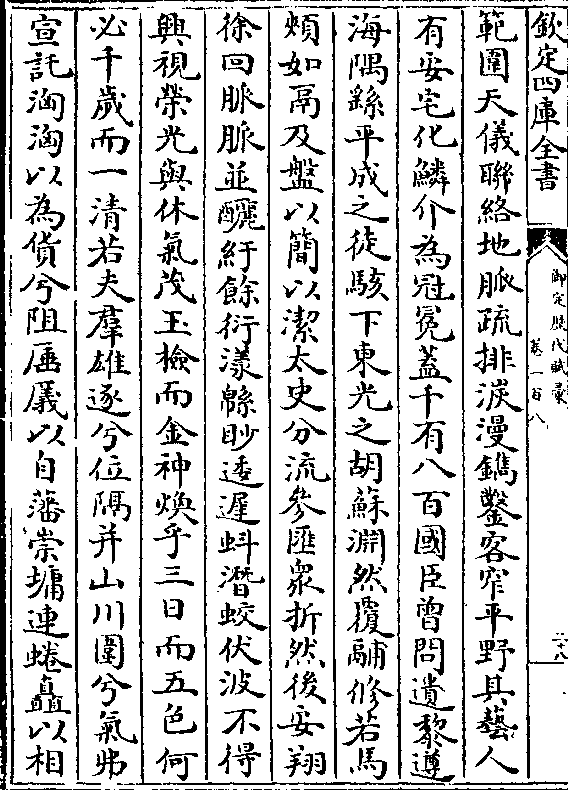 欽定四庫全書
御定歷代賦彙
卷一百八
二十八
範圍天儀聯絡地脈疏排淤漫鐫鑿窄平野具藝人
有妥宅化鱗介為冠冕蓋千有八百國臣曾問遺黎遵
海隅繇平成之徒駭下東光之胡蘇淵然覆鬴修若馬
頰如鬲及盤以簡以潔太史分流參匯眾折然後妥翔
徐回脈脈並釃紆餘衍漾緜眇逶遲蚪潛蛟伏波不得
興視榮光與休氣茂玉檢而金神煥乎三日而五色何
必千歲而一清若夫羣雄逐兮位隅并山川圍兮氣弗
宣託洶洶以為貨兮阻厜㕒以自藩崇墉連蜷矗以相